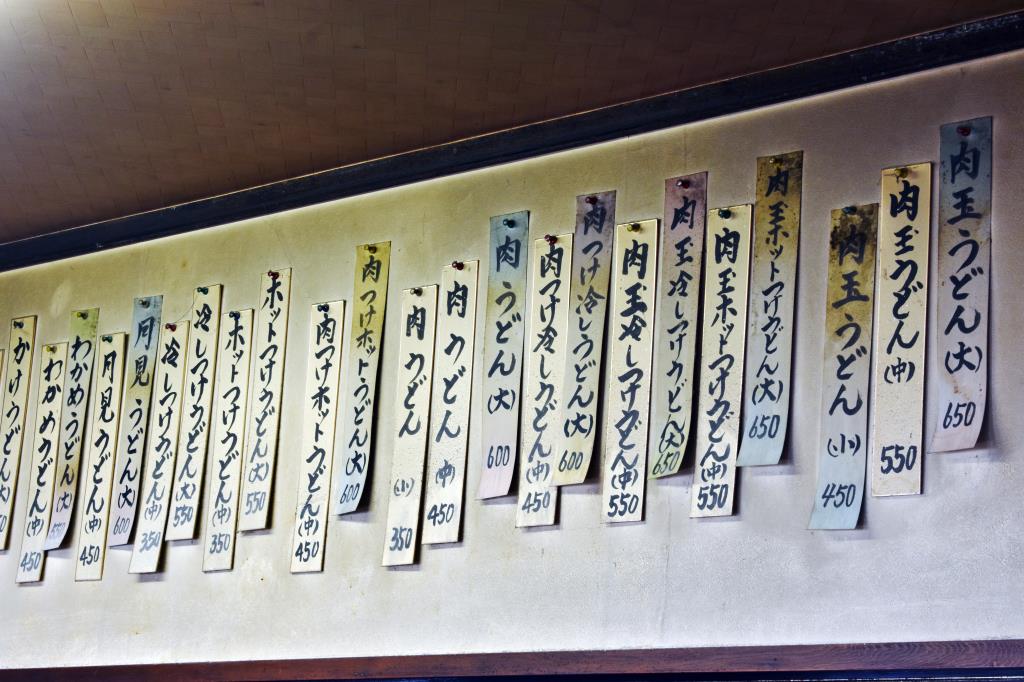 肉玉うどん(大)650
肉玉うどん(中)550
肉玉うどん(小)450
肉玉ホットつけうどん(大)650
肉玉ホットつけうどん(中)550
肉玉冷しつけうどん(大)650
肉玉冷しつけうどん(中)550
肉つけ冷しうどん(大)600
肉つけ冷しうどん(中)450
肉うどん(大)600
肉うどん(中)450
肉うどん(小)350
肉つけホットうどん(大)600
肉つけホットうどん(中)450
ホットつけうどん(大)550
ホットつけうどん(中)350
冷しつけうどん(大)550
冷しつけうどん(中)350
月見うどん(大)600
月見うどん(中)450
わかめうどん(大)550
わかめうどん(中)450
かけうどん(大)